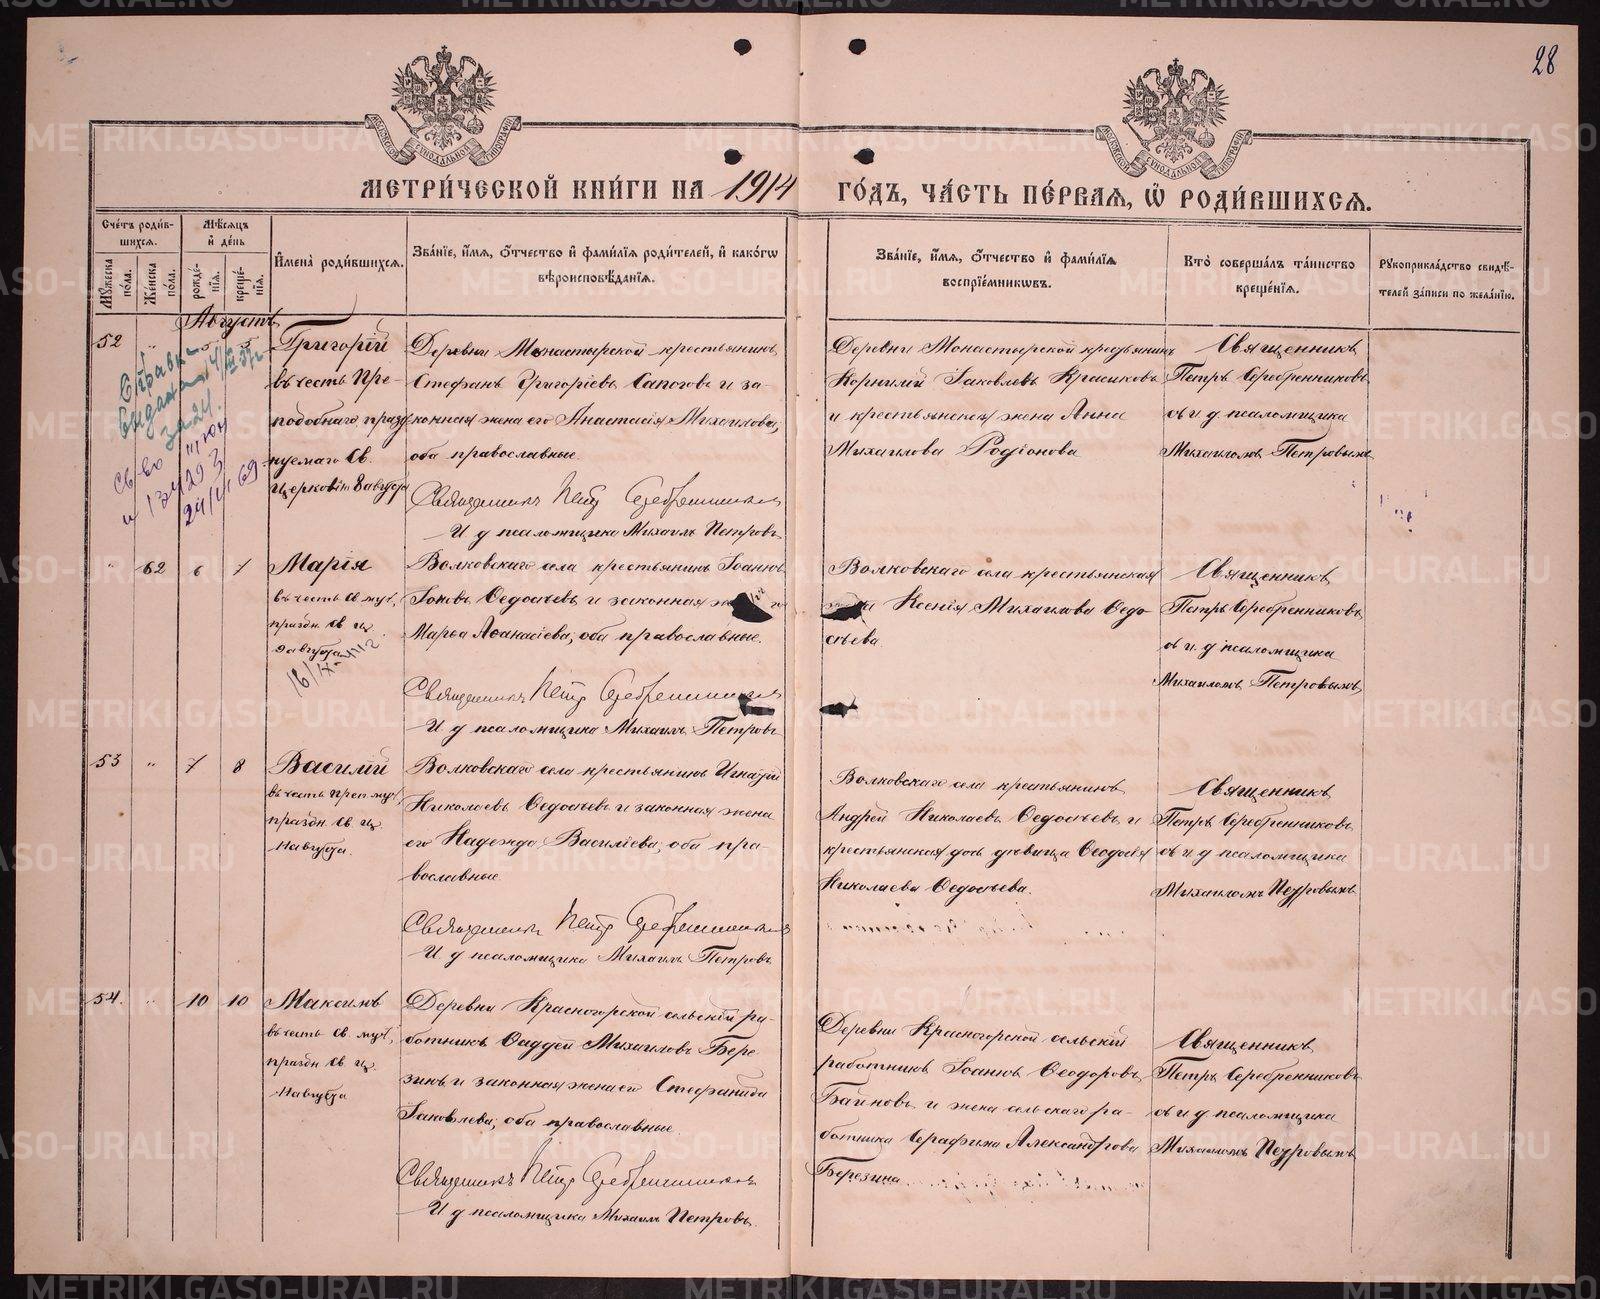 28
МЕТРИ́ЧЕСКОЙ КНИ́ГИ НА 1914 ГО́ДЪ, ЧА́СТЬ ПЕ́РВАЯ, Ѡ РОДИ́ВШИХСЯ.
Сче́тъ роди́в-
шихся.
Мꙋжеска по́ла.
Же́нска по́ла.
Мѣ́сяцъ и де́нь
рожде́-нїя.
креще́-нїя.
И҆мена̀ роди́вшихся.
Зва́нїе, и҆́мя, ѻ҆́тчество и҆ фами́лїя роди́телей, и҆ како́гѡ
вѣроисповѣ́данїя.
Зва́нїе, и҆́мя, ѻ҆́тчество и҆ фами́лїя
воспрїе́мникѡвъ.
Кто̀ соверша́лъ та́инство
креще́нїя.
Рꙋкоприкла́дство свидѣ́-
телей за́писи по жела́нїю.
Августъ
52 " 5 5
Григорій
въ честь Пре-
подобнаго празд-
нуемаго Св.
Церковію 8 августа
Справка
Выдана
Деревни Монастырской крестьянинъ
Стефанъ Григоріевъ Сапоговъ и за-
конная жена его Анастасія Михаилова,
оба православные
Священникъ Петръ Серебренниковъ
И д псаломщика Михаилъ Петровъ
Деревни Монастырской крестьянинъ
Корнилій Іаковлевъ Красиковъ
и крестьянская жена Анна
Михаилова Родіонова
Священникъ
Петръ Серебренниковъ
съ и. д. псаломщика
Михаиломъ Петровымъ
" 62 6 7
Марія
въ честь Св муч.,
праздн. Св. Ц.
9 августа
Волковскаго села крестьянинъ Іоаннъ
Іовъ Ѳедосѣевъ и законная жена
Марѳа Аѳанасіева, оба православные.
Священникъ Петръ Серебренниковъ
И д псаломщика Михаилъ Петровъ
Волковскаго села крестьянская
жена Ксенія Михаилова Ѳедо-
сѣева
Священникъ
Петръ Серебренниковъ
съ и. д псаломщика
Михаиломъ Петровымъ
53 " 7 8
Василій
въ честь преп муч,
праздн Св Ц.
11 августа.
Волковскаго села крестьянинъ Игнатій
Николаевъ Ѳедосѣевъ и законная жена
его Надежда Василіева, оба пра-
вославные.
Священникъ Петръ Серебренниковъ
И д псаломщика Михаилъ Петровъ
Волковскаго села крестьянинъ
Андрей Николаевъ Ѳедосѣевъ и
крестьянская дочь дѣвица Ѳеодосія
Николаева Ѳедосѣева.
Священникъ
Петръ Серебренниковъ
съ и д псаломщика
Михаиломъ Петровымъ
54. " 10 10
Максимъ
въ честь Св муч,
праздн Св Ц.
11 августа
Деревни Красногорской сельскій ра-
ботникъ Ѳаддей Михаиловъ Бере-
зинъ и законная жена его Стефанида
Іаковлева, оба православные.
Священникъ Петръ Серебренниковъ
И д псаломщика Михаилъ Петровъ.
Деревни Красногорской сельскій
работникъ Іоаннъ Ѳеодоровъ
Баиновъ и жена сельскаго ра-
ботника Серафима Александрова
Березина
Священникъ
Петръ Серебренниковъ
съ и д псаломщика
Михаиломъ Петровымъ
METRIKI.GASO-URAL.RU